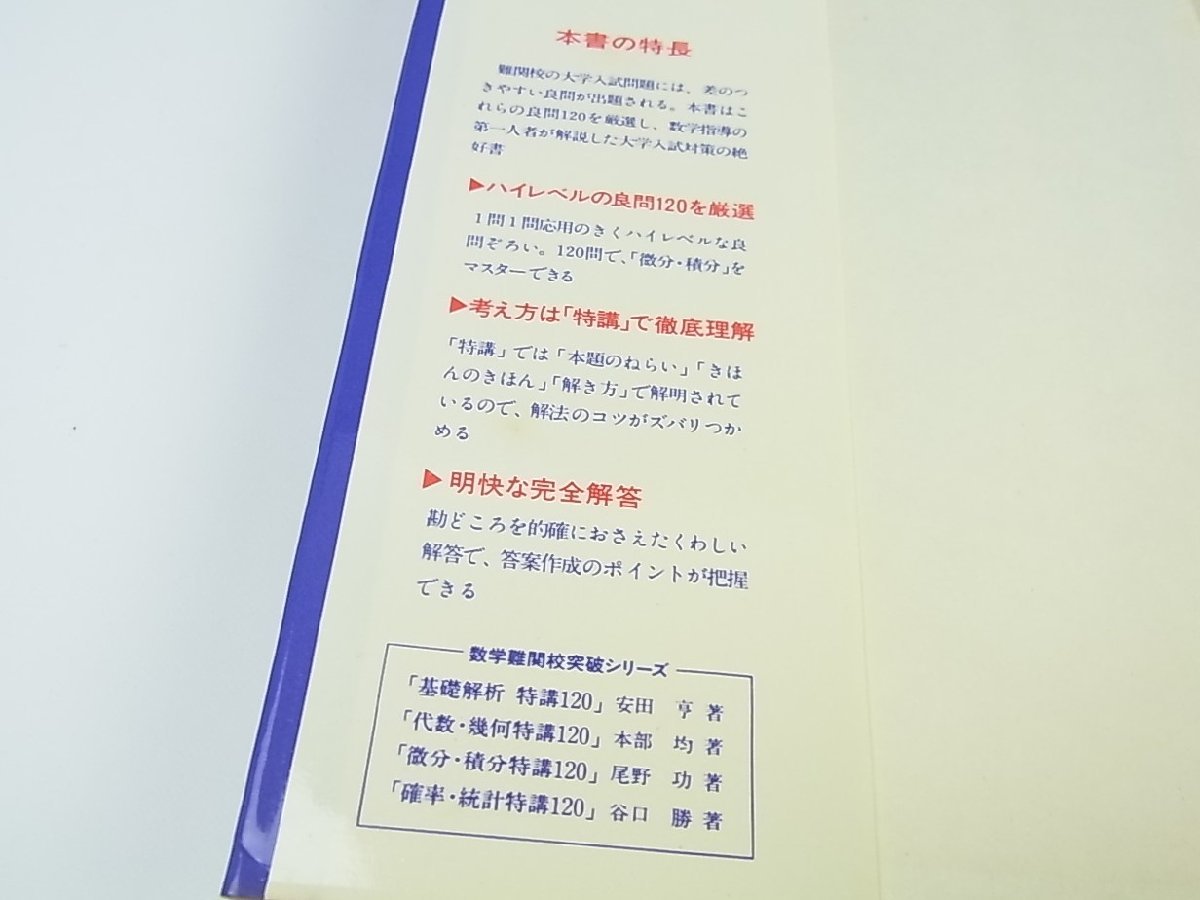 本書の特長
難関校の大学入試問題には、差のつ
きやすい良問が出題される。本書はこ
れらの良問120を厳選し、数学指導の
第一人者が解説した大学入試対策の絶
好書
▶ハイレベルの良問120を厳選
1問1問応用のきくハイレベルな良
問ぞろい。120問で、「微分・積分」を
マスターできる
▶考え方は「特講」で徹底理解
「特講」では「本題のねらい」「きほ
んのきほん」「解き方」で解明されて
いるので、解法のコツがズバリつか
める
▶明快な完全解答
勘どころを的確におさえたくわしい
解答で、答案作成のポイントが把握
できる
数学難関校突破シリーズ
「基礎解析 特講120」 安田 亨 著
「代数・幾何特講120」 本部 均 著
「微分・積分特講120」 尾野 功 著
「確率・統計特講120」 谷口 勝 著